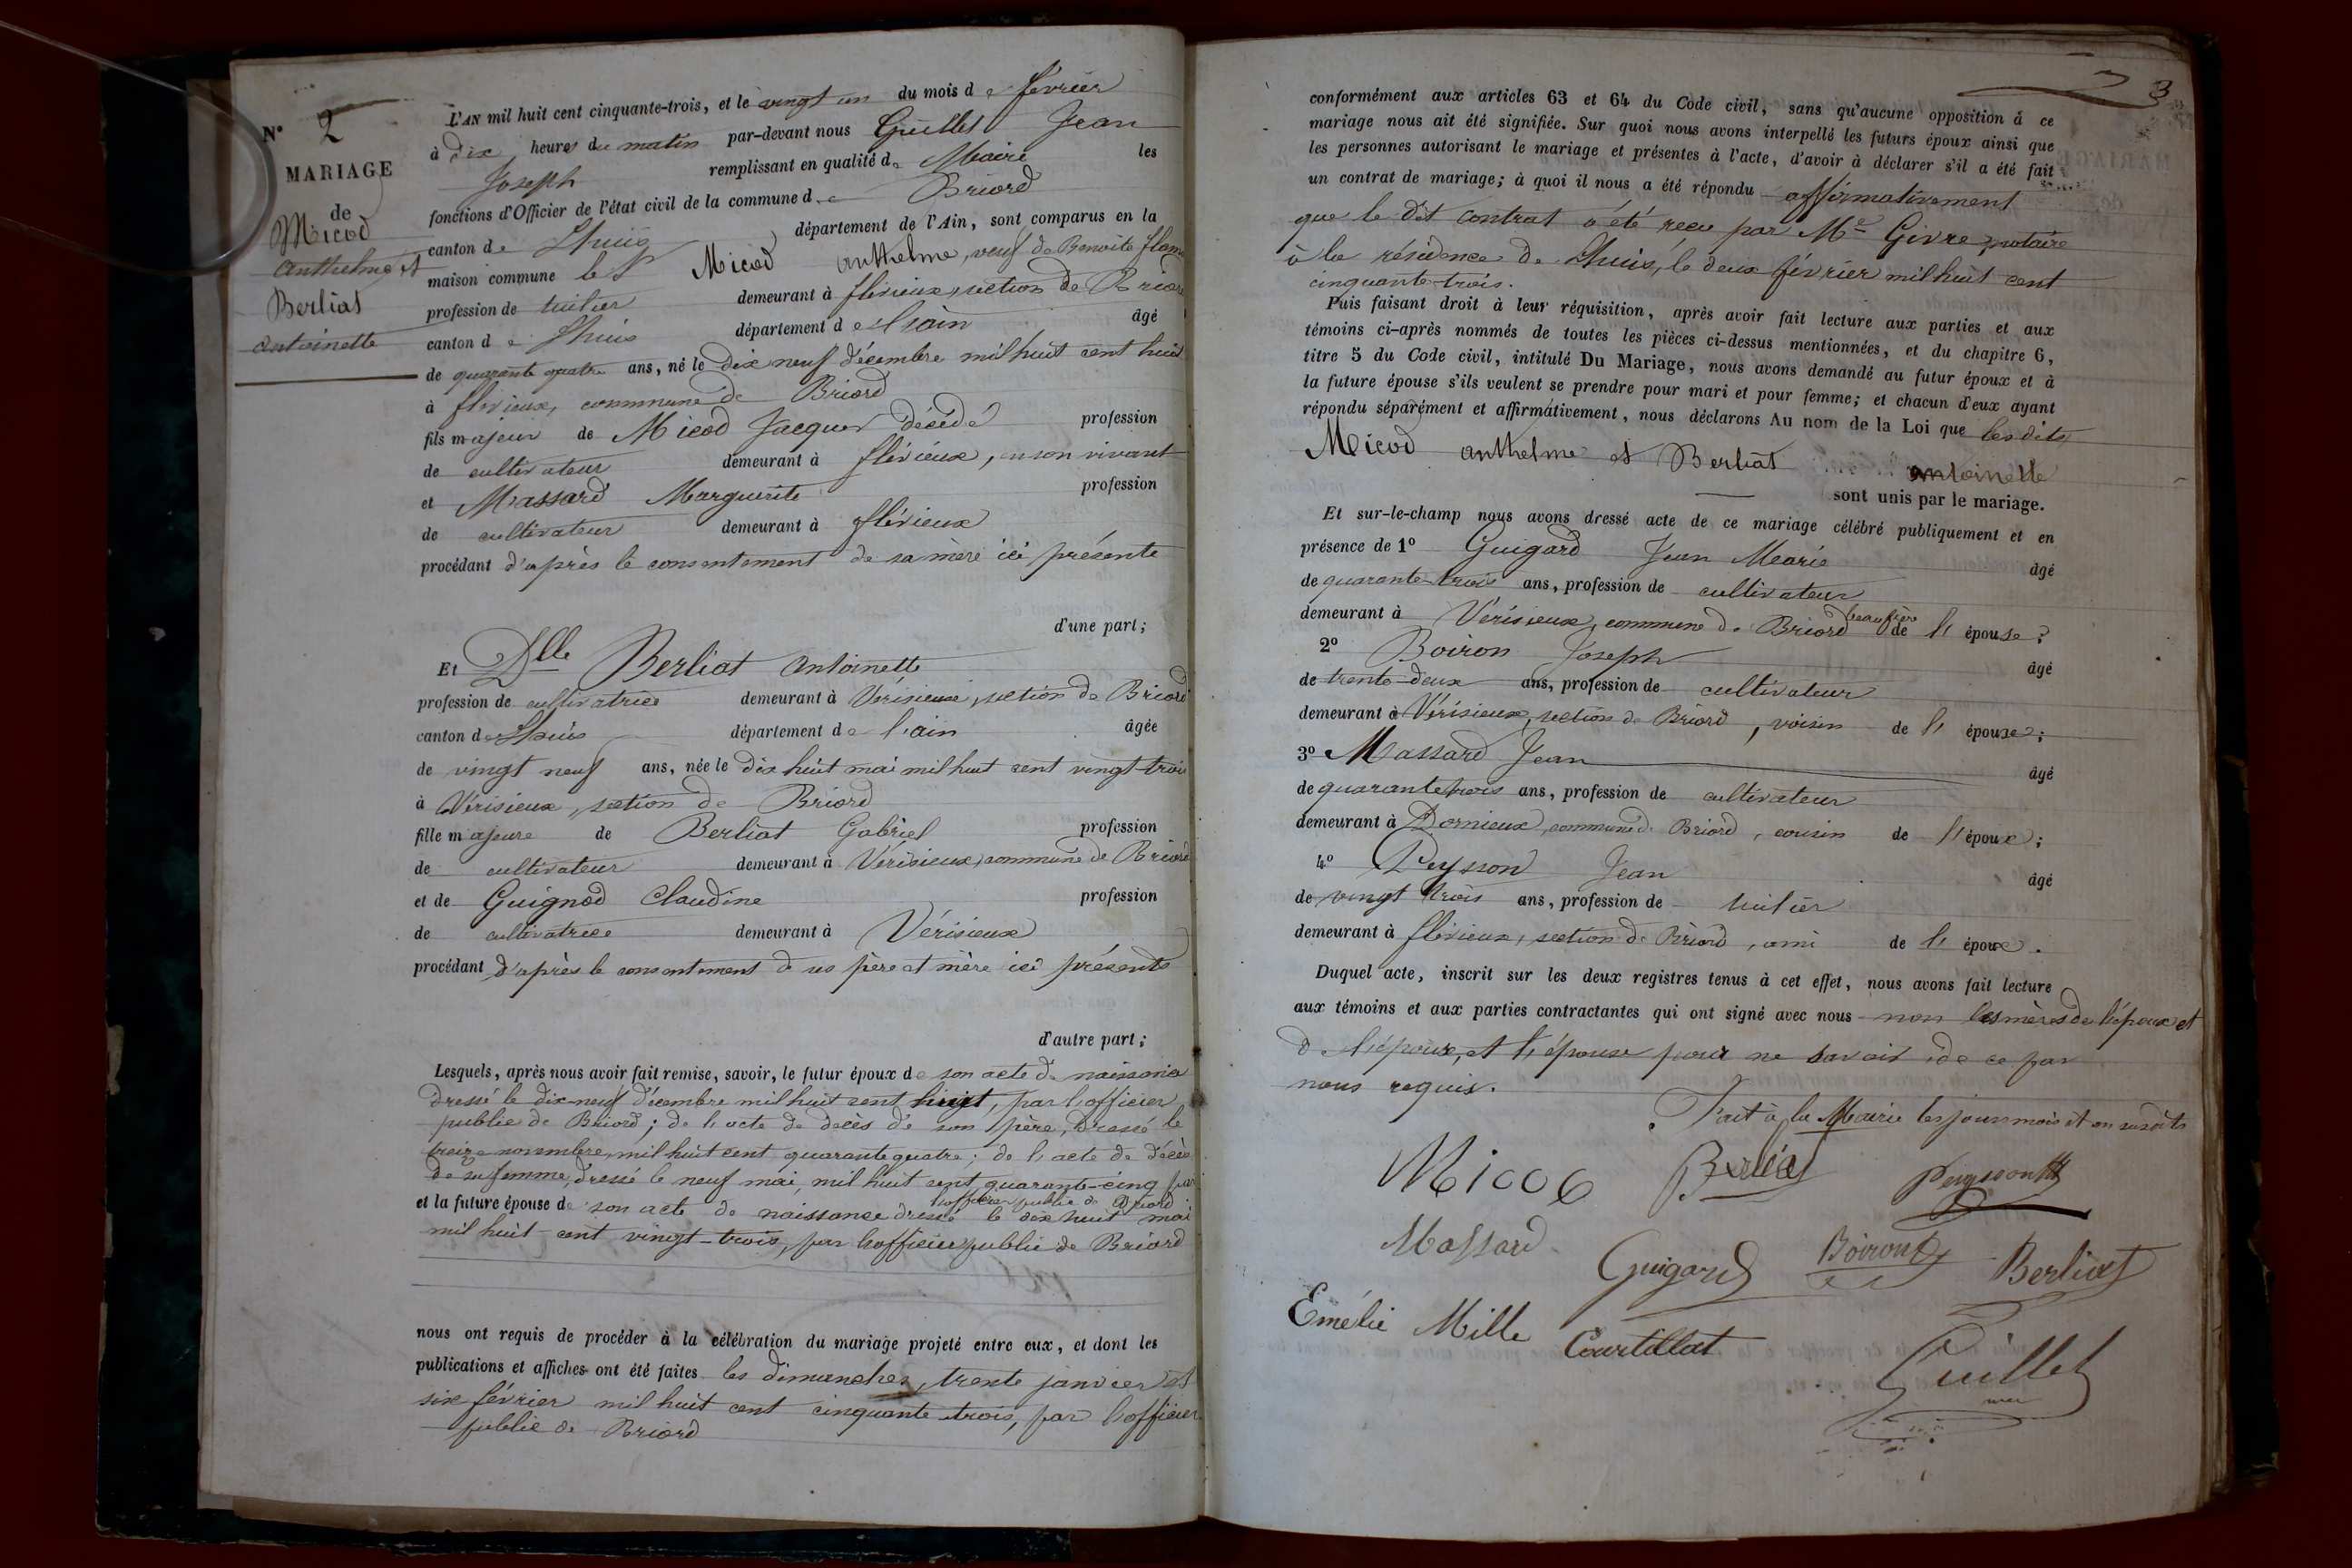 N° 2
MARIAGE
de
Micod
Anthelme et
Berliat
Antoinette
L'AN mil huit cent cinquante-trois, et le vingt un du mois de février
à dix heures du matin par-devant nous Guillet Jean
Joseph remplissant en qualité de Maire les
fonctions d'Officier de l'état civil de la commune de Briord
canton de Lhuis département de l'Ain, sont comparus en la
maison commune le Sr Micod Anthelme, veuf de Benoite
profession de tuilier demeurant à flévieux, section de Briord
canton de Lhuis département de l'ain âgé
de quarante quatre ans, né le dix neuf décembre mil huit cent huit
à flévieux, commune de Briord
fils majeur de Micod Jacques décédé profession
de cultivateur demeurant à flévieux, en son vivant
et Massard Marguerite profession
de cultivateur demeurant à flévieux
procédant d'après le consentement de sa mère ici présente
d'une part ;
Et Dlle Berliat Antoinette
profession de cultivatrice demeurant à Vérisieux, section de Briord
canton de Lhuis département de l'ain âgée
de vingt neuf ans, née le dix huit mai mil huit cent vingt-trois
à Vérisieux, section de Briord
fille majeure de Berliat Gabriel profession
de cultivateur demeurant à Vérisieux, commune de Briord
et de Guignod Claudine profession
de cultivatrice demeurant à Vérisieux
procédant d'après le consentement de ses père et mère ici présents
d'autre part ;
Lesquels, après nous avoir fait remise, savoir, le futur époux de son acte de naissance
dressé le dix-neuf décembre mil huit cent huit, par l'officier
public de Briord ; de l'acte de décès de son père, dressé le
treize novembre, mil huit cent quarante quatre ; de l'acte de décès
de sa femme, dressé le neuf mai, mil huit cent quarante-cinq par
l'officier public de Briord
et la future épouse de son acte de naissance dressé le dix huit mai
mil huit-cent vingt-trois, par l'officier public de Briord
nous ont requis de procéder à la célébration du mariage projeté entre eux, et dont les
publications et affiches ont été faites les dimanches, trente janvier et
six février mil huit cent cinquante trois, par l'officier
public de Briord
3
conformément aux articles 63 et 64 du Code civil, sans qu'aucune opposition à ce
mariage nous ait été signifiée. Sur quoi nous avons interpellé les futurs époux ainsi que
les personnes autorisant le mariage et présentes à l'acte, d'avoir à déclarer s'il a été fait
un contrat de mariage ; à quoi il nous a été répondu affirmativement
que le dit contrat a été reçu par Me Givre, notaire
à la résidence de Lhuis, le deux février mil huit cent
cinquante-trois.
Puis faisant droit à leur réquisition, après avoir fait lecture aux parties et aux
témoins ci-après nommés de toutes les pièces ci-dessus mentionnées, et du chapitre 6,
titre 5 du Code civil, intitulé Du Mariage, nous avons demandé au futur époux et à
la future épouse s'ils veulent se prendre pour mari et pour femme ; et chacun d'eux ayant
répondu séparément et affirmativement, nous déclarons Au nom de la Loi que les dits
Micod Anthelme et Berliat Antoinette
sont unis par le mariage.
Et sur-le-champ nous avons dressé acte de ce mariage célébré publiquement et en
présence de 1° Guigard Jean Marie âgé
de quarante-trois ans, profession de cultivateur
demeurant à Vérisieux, commune de Briord beau frère de l'épouse ;
2° Boiron Joseph âgé
de trente-deux ans, profession de cultivateur
demeurant à Vérisieux, section de Briord, voisin de l'épouse ;
3° Massard Jean âgé
de quarante trois ans, profession de cultivateur
demeurant à Dornieux, commune de Briord, cousin de l'époux ;
4° Peysson Jean âgé
de vingt trois ans, profession de tuilier
demeurant à flévieux, section de Briord, ami de l'époux.
Duquel acte, inscrit sur les deux registres tenus à cet effet, nous avons fait lecture
aux témoins et aux parties contractantes qui ont signé avec nous non les mères de l'époux et
de l'épouse, et l'épouse pour ne savoir, de ce par
nous requis.
Fait à la Mairie les jour mois et an susdits
Micod Berliat Peysson
Massard Guigard Boiron Berliat
Emélie Mille Courtillat
Guillet